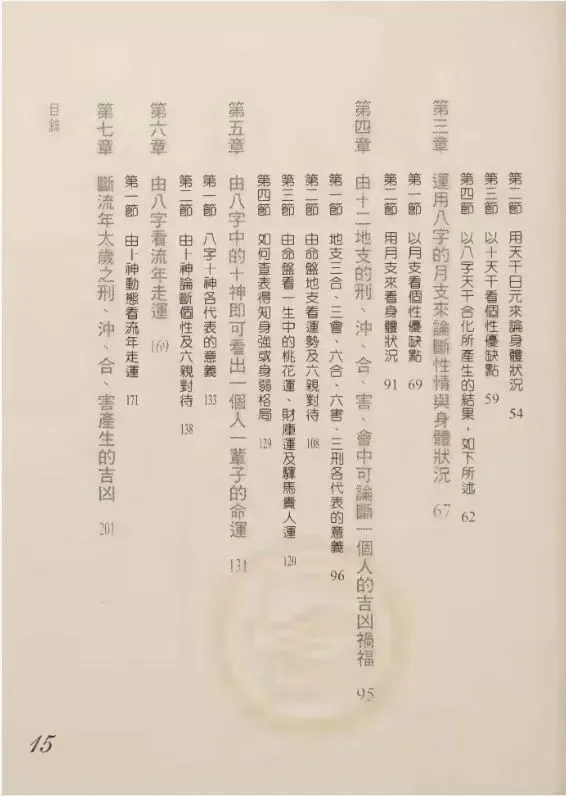 第二節 用天干日元來論身體狀況 54
第三節 以十天干看個性優缺點 59
第四節 以八字天干合化所產生的結果，如下所述 62
第三章 運用八字的月支來論斷性情與身體狀況 67
第一節 以月支看個性優缺點 69
第二節 用月支來看身體狀況 91
第四章 由十二地支的刑、沖、合、害、會中可論斷一個人的吉凶禍福 95
第一節 地支三合、三會、六合、六害、三刑各代表的意義 96
第二節 由命盤地支看運勢及六親對待 108
第三節 由命盤看一生中的桃花運、財庫運及驛馬貴人運 120
第四節 如何查表得知身強或身弱格局 129
第五章 由八字中的十神即可看出一個人一輩子的命運 131
第一節 八字十神各代表的意義 133
第二節 由十神論斷個性及六親對待 138
第六章 由八字看流年走運 169
第一節 由十神動態看流年走運 171
第七章 斷流年太歲之刑、沖、合、害產生的吉凶 201
目錄
15